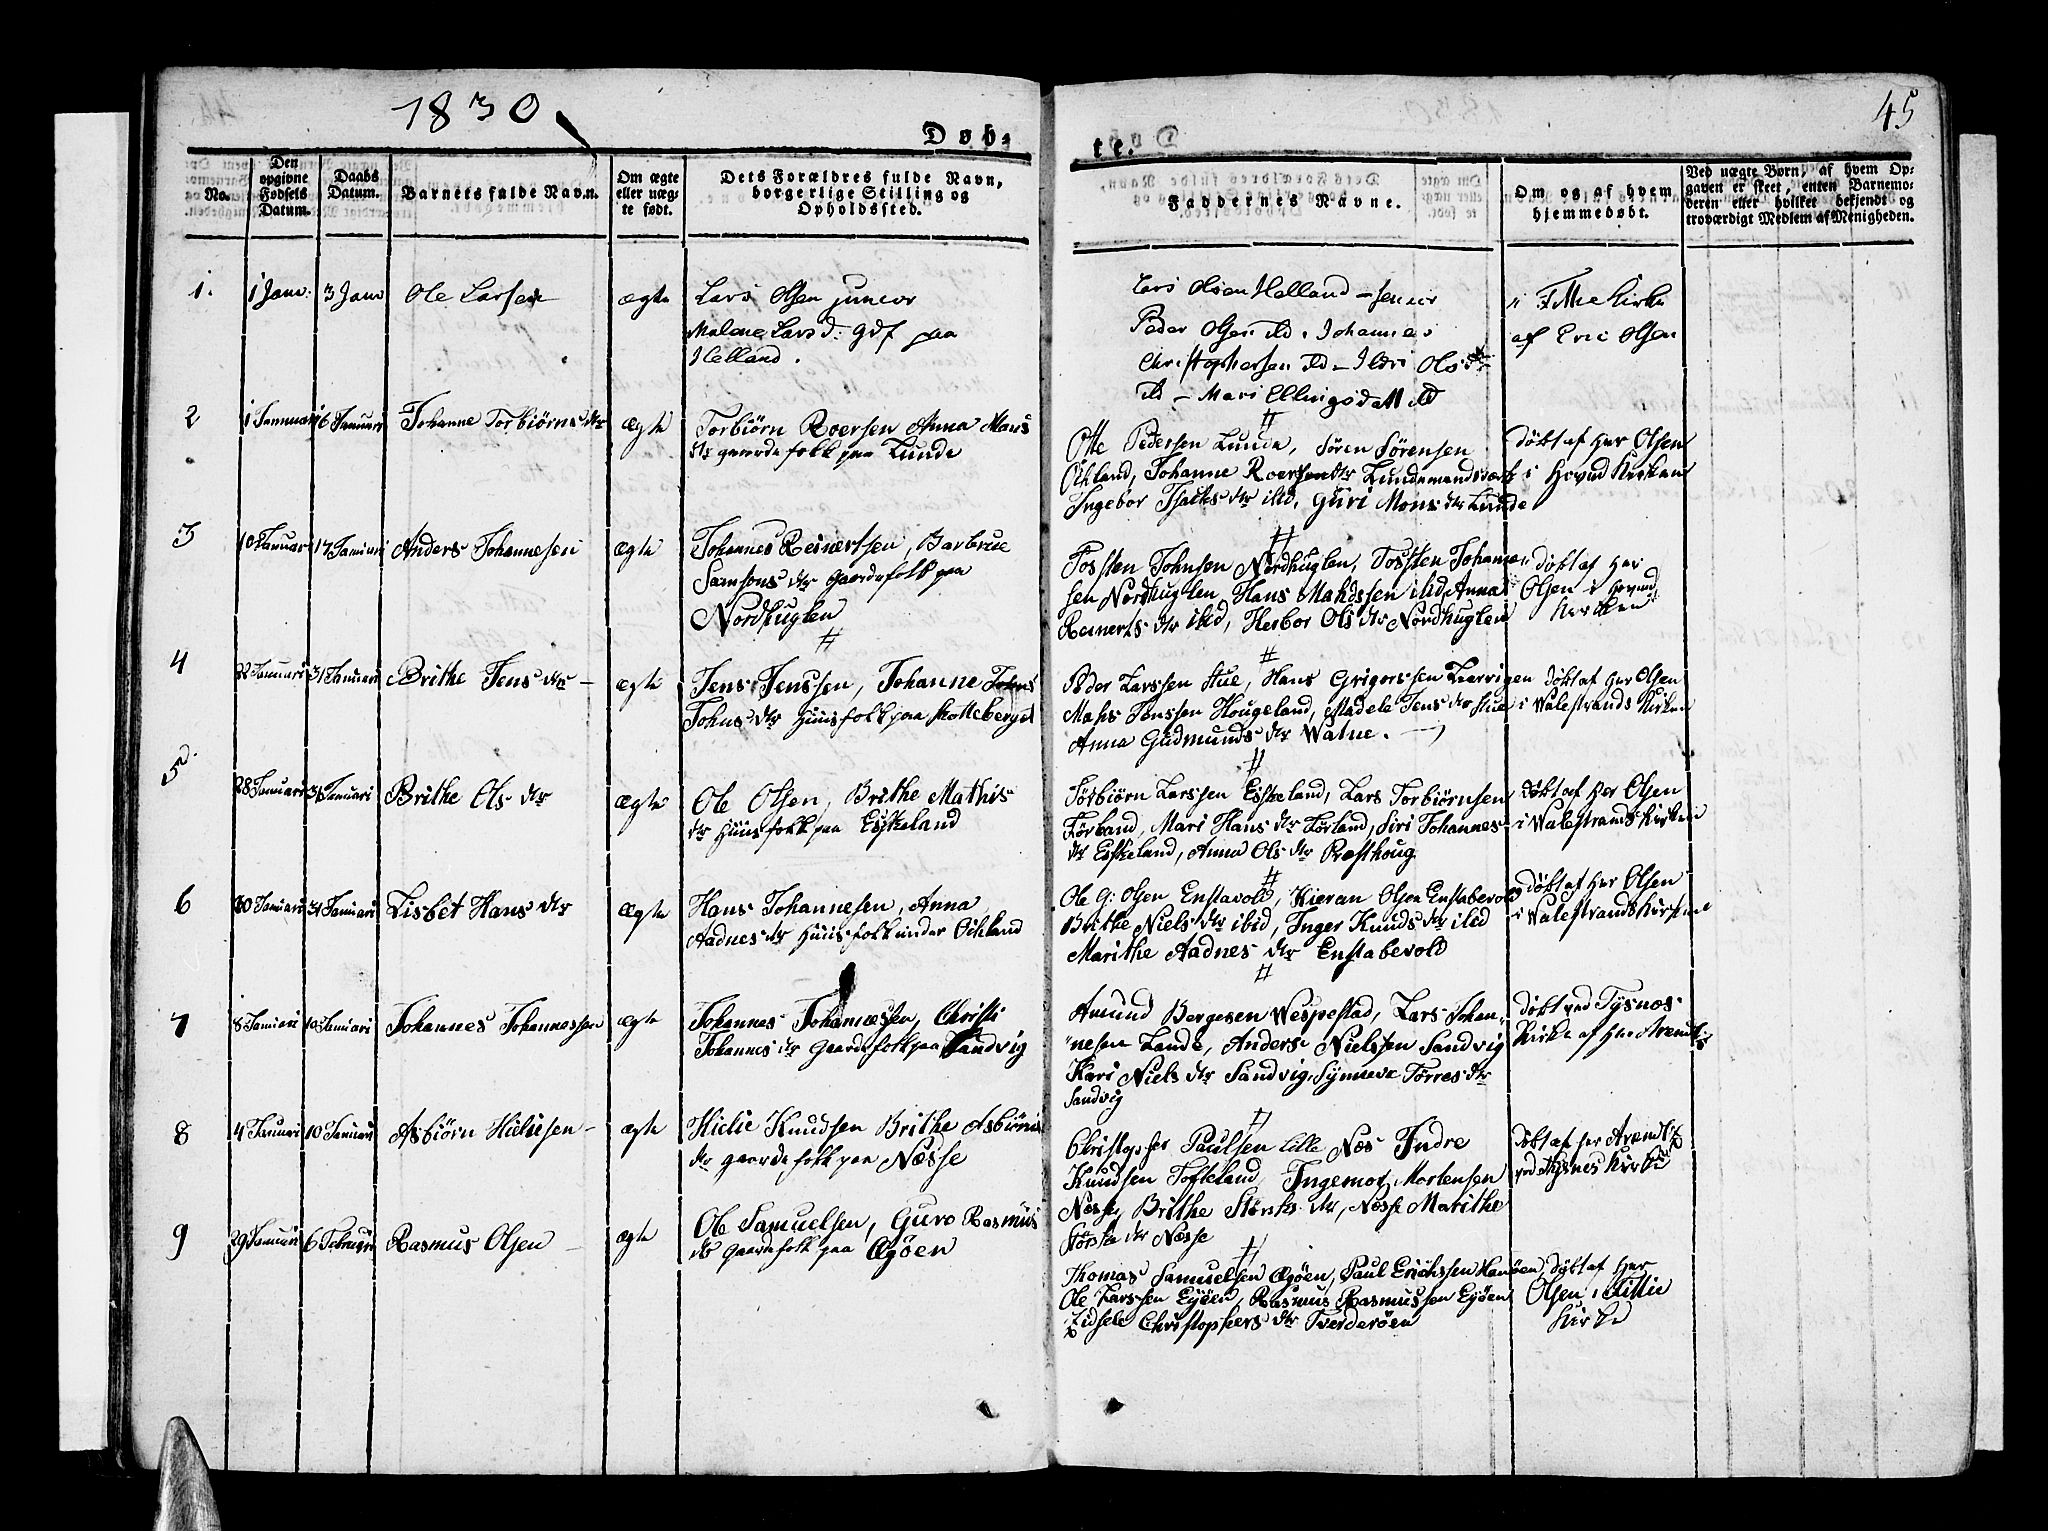 1830
45
Døb-
te.
No.
Den opgivne Fødsels Datum.
Daabs Datum.
Barnets fulde Navn.
Om ægte eller uægte født.
Dets Forældres fulde Navn, borgerlige Stilling og Opholdssted.
Faddernes Navne.
Om og af hvem hjemmedøbt.
Ved uægte Børn, af hvem Opgaven er skeet, enten Barnemoderen eller hvilket bekjendt og troværdigt Medlem af Menigheden.
1.
1 Janr:
3 Janr
Ole Larsen
ægte
Lars Olsen junior
Malene Lars d. gdf paa
Helland.
Lars Olsen Helland - senior
Peder Olsen ibd. Johannes
Christophersen ibd - Ildri Ols dr
ibd - Mari Ellings d
i Fitte kirke
af Eric Olsen
2
1 Januari
6 Januari
Johanne Torbiørns dtr
ægte
Torbiørn Roersen Anna Mons
dtr gaardsfolk paa Lunde
Otte Pedersen Lunde, Søren Sørensen
Økland, Johanne Roersens dtr Lundemandsverk
Ingebor Isaks dtr ibid, Guri Mons dtr Lunde
Døbt af Her Olsen
i Hovud Kirken
3
10 Januari
17 Januari
Anders Johannesen
ægte
Johannes Reinertsen, Barbrue
Samsons dtr Gaardsfolk paa
Nordhuglen
#
Tosten Johnsen Nordhuglen, Tosten Johannes
sen Nordhuglen Hans Mahdssen ibid Anna
Reinerts dtr ibid, Herbor Ols dtr Nordhuglen
Døbt af Her
Olsen i Hovud
Kirken
4
22 Januari
31 Januari
Brithe Jens dtr
ægte
Jens Jenssen, Johanne
Johns dtr Huusfolk paa Skotteberget
Peder Larssen Hue, Hans Grigorssen
Mahs Jonssen Hougeland, Madele Jens dtr Hue
Anna Gudmunds dtr Watne.
Døbt af Her Olsen
i Walestrands Kirken
5
28 Januari
31 Januari
Brithe Ols dtr
ægte
Ole Olsen, Brithe Mathis
dtr Huusfolk paa Eskeland
Torbiørn Larssen Eskeland, Lars Torbiørnsen
Førland, Mari Hans dtr Førland, Siri Johannes
dtr Eskeland, Anna Ols dtr Præsthoug
Døbt af Her Olsen
i Walestrands Kirken
6
30 Januari
31 Januari
Lisbet Hans dtr
ægte
Hans Johannesen, Anna
Aadnes dtr Huusfolk under Økland
Ole G: Olsen Enstavold, Kieran Olsen Enstabevold
Brithe Niels dtr ibid, Inger Knuds dtr ibid
Marithe Aadnes dtr Enstabevold
Døbt af Her Olsen
i Walestrands Kirken
7
8 Januari
10 Januari
Johannes Johannessen
ægte
Johannes Johannessen, Christi
Johannes dtr Gaardsfolk paa Sandvig
Amund Bergesen Wespestad, Lars Johan-
nesen Lande, Anders Nielssen Sandvig
Kari Niels dtr Sandvig, Synneve Torres dtr
Sandvig
Døbt ved Tysnes
Kirke af Her Arendtz
8
4 Januari
10 Januari
Asbiørn Hieliesen
ægte
Hielie Knudsen Brithe Asbiørns
dtr gaardsfolk paa Næsse
Christopher Paulsen Lille Nøs Indre
Knudsen Tofteland, Ingemor Mortensen
Næsse, Brithe Størks dtr, Næsse Marithe
Størks dtr Næsse
Døbt af Her Arendtz
ved Tysnes Kirke
9
29 Januari
6 Februari
Rasmus Olsen
ægte
Ole Samuelsen, Guro Rasmus
dtr gaardsfolk paa Øgøen
Thomas Samuelsen Øgøen, Paul Erichssen
Ole Larssen Eyøen, Rasmus Rasmussen Eyøen
Zidsele Christophers dtr Tverderøen
Døbt af Her
Olsen i Fittie
Kirke